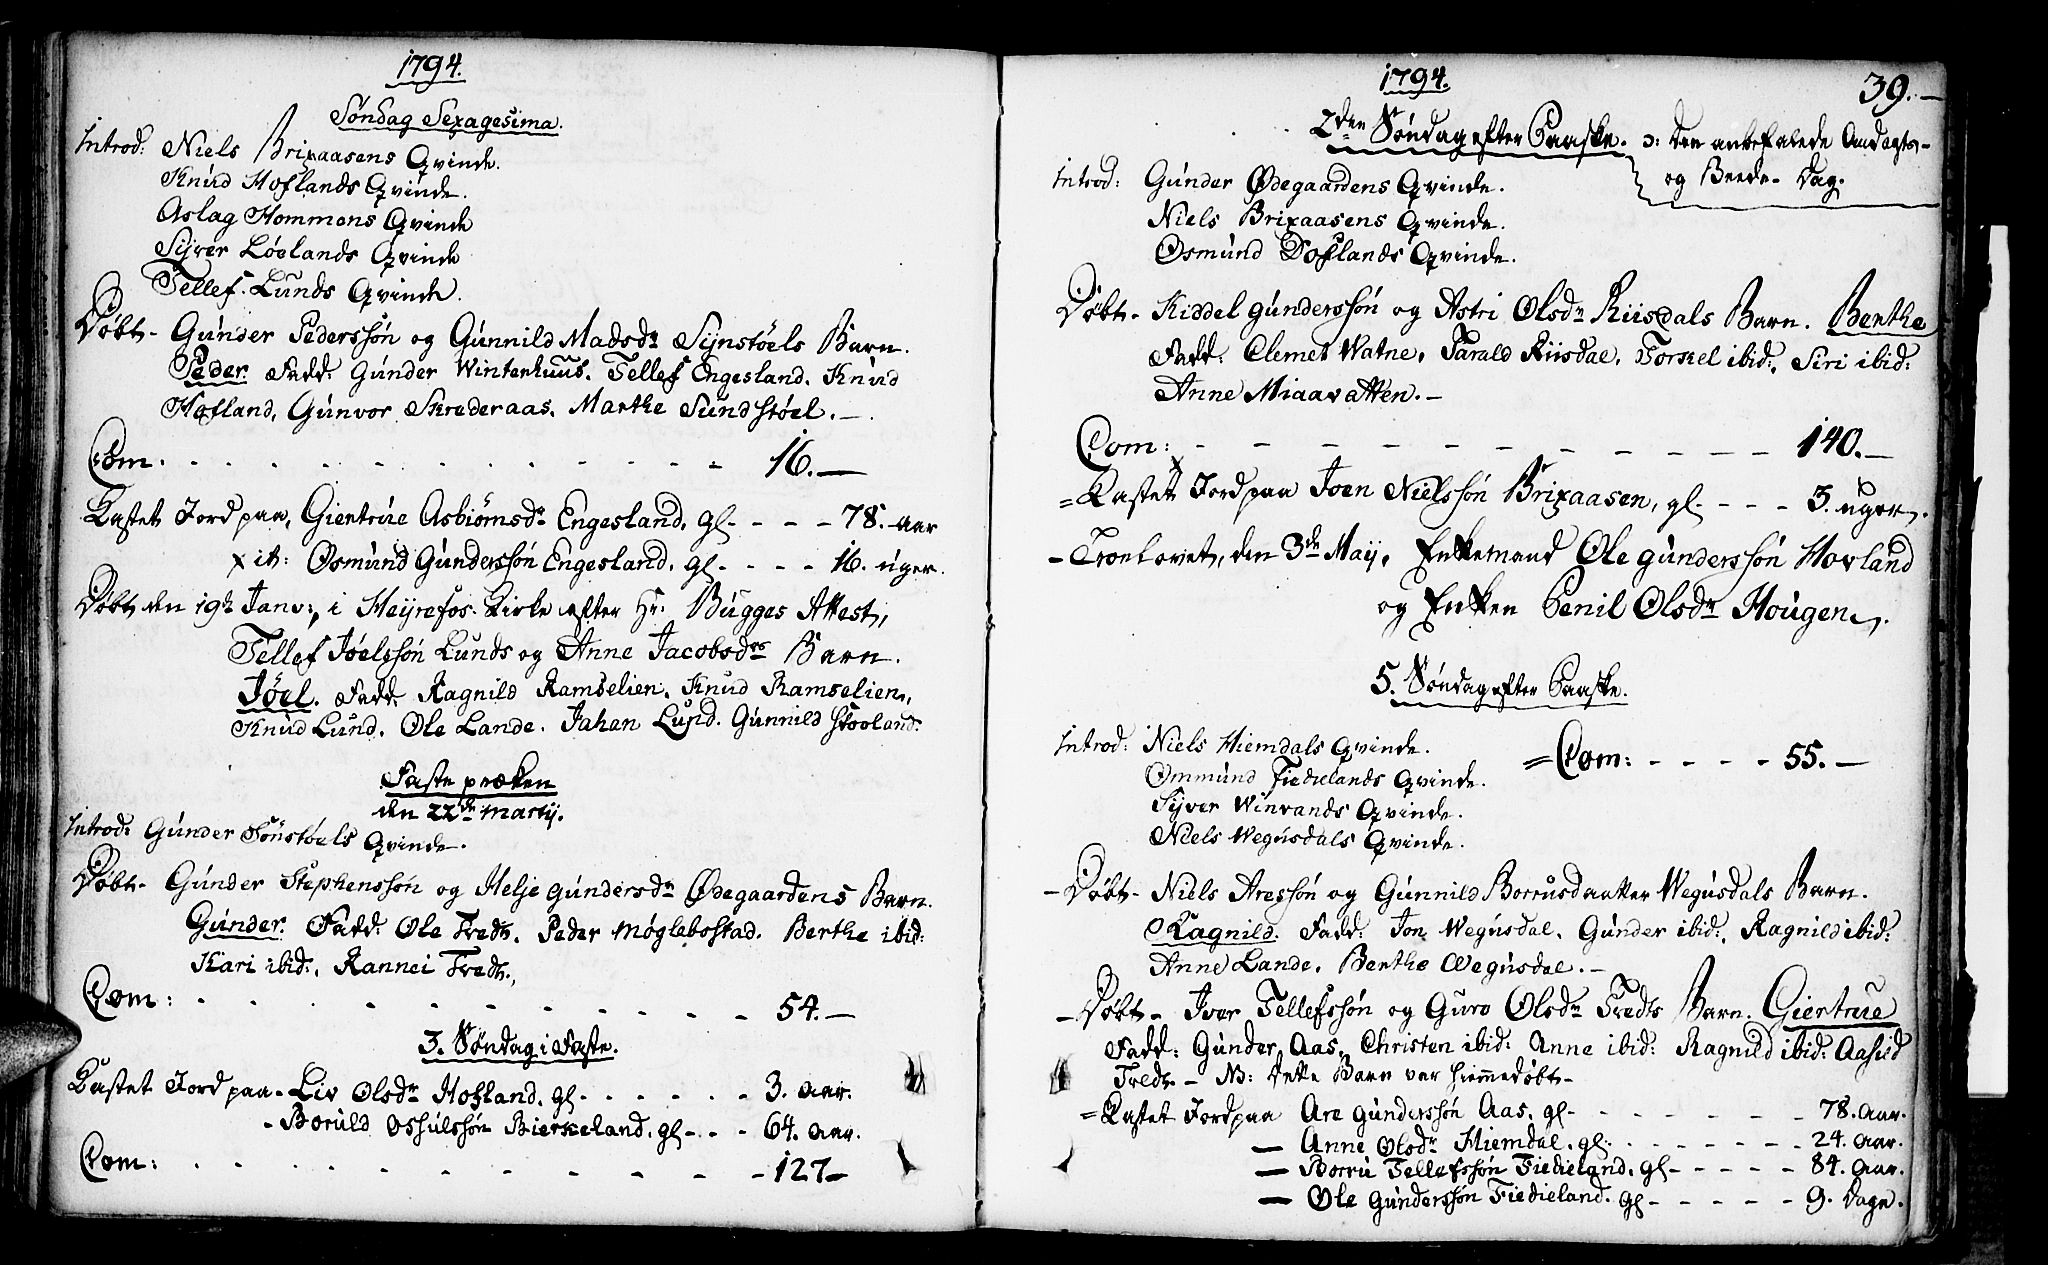 1794.
Söndag Sexagesima.
Introd: Niels Brixaasens Qvinde.
Knud Hoflands Qvinde.
Aslag Hommens Qvinde
Sijver Löelands Qvinde
Tellef Lunds Qvinde.
Döbt - Gunder Pederssön og Gunnild Madsdr Sijnstöels Barn.
Peder. Fadd: Gunder Winterhuus. Tellef Engesland. Knud
Hofland, Gunvor Skrederaas. Marthe Sundstöel. -
Com. - - - 16. -
Kastet Jord paa, Giertrue Asbiörnsdr Engesland, gl - - - - 78. aar
x it: Osmund Gunderssön Engesland, gl - - - - 16. uger.
Döbt den 19de Janv:, i Heyrefos Kirke efter Hr: Bugges Attest,
Tellef Jöelssön Lunds og Anne Jacobsdrs Barn.
Jöel. Fadd: Ragnild Ramselien. Knud Ramselien,
Knud Lund. Ole Lande. Johan Lund. Gunnild Stooland.
Faste præken
den 22de Martij.
Introd: Gunder Tönstöels Qvinde.
Döbt - Gunder Stephenssön og Helje Gundersdr Ödegaardens Barn.
Gunder. Fadd: Ole Tredt. Peder Möglebostad. Berthe ibid:
Kari ibid:, Rannei Tredt.,
Com: - - - 54. -
3. Söndag i Faste.
Kastet Jord paa - Liv Olsdr Hofland. gl - - - - - - 3. aar.
- Boruld Osfulssön Bierkeland. gl - - - 64. aar.
Com: - - - 127 -
1794.
39. -
2den Söndag efter Paaske. ɔ: den anbefalede Andagts-
og Beede- Dag.
Introd: Gunder Ödegaardens Qvinde.
Niels Brixaasens Qvinde.
Osmund Doflands Qvinde.
Döbt - Kiddel Gunderssön og Astri Olsdr Riisdals Barn. Berthe
Fadd: Clemet Watne, Tarald Riisdal, Torkel ibid:, Siri ibid:
Anne Miaavatten. -
Com: - - - 140. -
= Kastet Jord paa Joen Nielssön Brixaasen, gl. - - - 3. uger.
- Troelovet, den 3de Maij, Enkemand Ole Gunderssön Hovland
og Enken Penil Olsdr Hougen.
5. Söndag efter Paaske.
Introd: Niels Hiemdals Qvinde.
= Com: - - - - 55. -
Ommund Fiedielands Qvinde.
Sijver Winrands Qvinde.
Niels Wegusdals Qvinde.
- Döbt - Niels Aressön og Gunnild Borrusdaatter Wegusdals Barn.
Ragnild. Fadd: Jon Wegusdal. Gunder ibid:, Ragnild ibid:
Anne Lande. Berthe Wegusdal. -
- Döbt - Iver Tellefssön og Guro Olsdr Tredts Barn. Giertrue
Fadd: Gunder Aas, Christen ibid: Anne ibid: Ragnild ibid: Aasild
Tredt - NB: Dette Barn var hiemmedöbt -
= Kastet Jord paa Are Gunderssön Aas. gl - - - - - - - 78. aar.
— Anne Olsdr Hiemdal. gl. - - - - - - - 24. aar.
— Borru Tellefssön Fiedieland. gl - - - - - 84. aar.
— Ole Gunderssön Fiedieland. gl - - - - - 9. Dage.